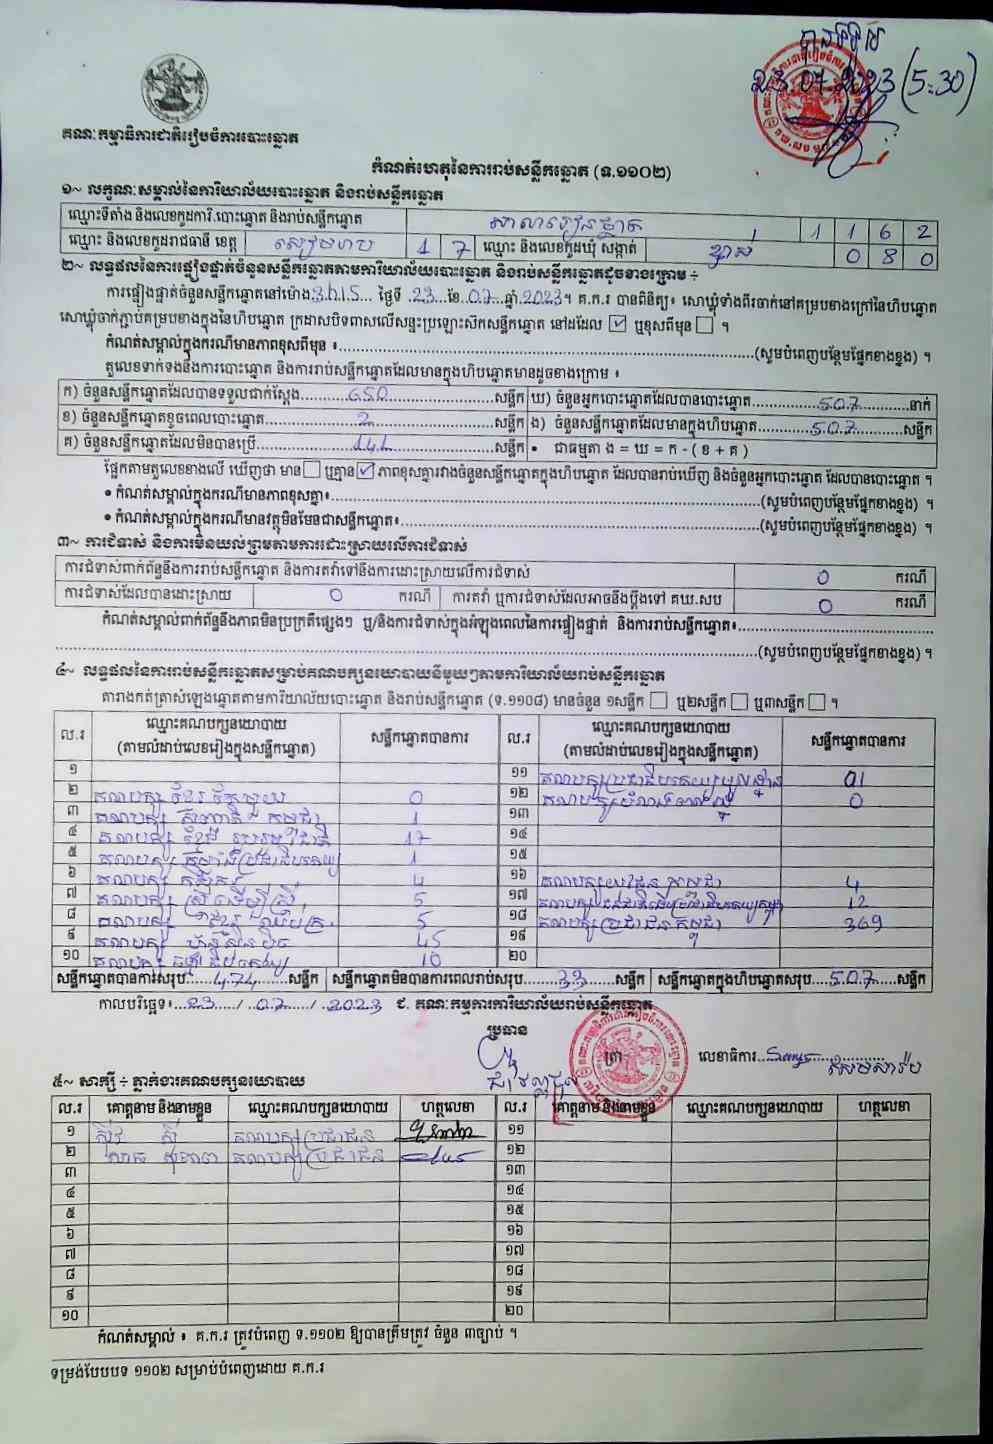 23.07.2023 (5:30)
គណៈកម្មាធិការជាតិរៀបចំការបោះឆ្នោត
កំណត់ហេតុនៃការរាប់សន្លឹកឆ្នោត (ទ.១១០២)
១~ លក្ខណៈសម្គាល់នៃការិយាល័យបោះឆ្នោត និងរាប់សន្លឹកឆ្នោត
ឈ្មោះទីតាំង និងលេខកូដការិ.បោះឆ្នោត និងរាប់សន្លឹកឆ្នោត សាលារៀនខ្នាត 1 1 6 2
ឈ្មោះ និងលេខកូដរាជធានី ខេត្ត សៀមរាប 1 7 ឈ្មោះ និងលេខកូដឃុំ សង្កាត់ ខ្នាត 0 8 0
២~ លទ្ធផលនៃការផ្ទៀងផ្ទាត់ចំនួនសន្លឹកឆ្នោតតាមការិយាល័យបោះឆ្នោត និងរាប់សន្លឹកឆ្នោតដូចខាងក្រោម ÷
ការផ្ទៀងផ្ទាត់ចំនួនសន្លឹកឆ្នោតនៅម៉ោង 3h15 ថ្ងៃទី 23 ខែ 07 ឆ្នាំ 2023។ គ.ក.រ បានពិនិត្យ៖ សោឃ្លុំទាំងពីរចាក់នៅគម្របខាងក្រៅនៃហិបឆ្នោត
សោឃ្លុំចាក់ភ្ជាប់គម្របខាងក្នុងនៃហិបឆ្នោត ក្រដាសបិទពាសលើសន្ទះប្រឡោះស៊កសន្លឹកឆ្នោត នៅដដែល ☑ ឬខុសពីមុន ☐ ។
កំណត់សម្គាល់ក្នុងករណីមានភាពខុសពីមុន ៖ (សូមបំពេញបន្ថែមផ្នែកខាងខ្នង) ។
តួលេខទាក់ទងនឹងការបោះឆ្នោត និងការរាប់សន្លឹកឆ្នោតដែលមានក្នុងហិបឆ្នោតមានដូចខាងក្រោម ៖
ក) ចំនួនសន្លឹកឆ្នោតដែលបានទទួលជាក់ស្តែង 650 សន្លឹក ឃ) ចំនួនអ្នកបោះឆ្នោតដែលបានបោះឆ្នោត 507 នាក់
ខ) ចំនួនសន្លឹកឆ្នោតខូចពេលបោះឆ្នោត 2 សន្លឹក ង) ចំនួនសន្លឹកឆ្នោតដែលមានក្នុងហិបឆ្នោត 507 សន្លឹក
គ) ចំនួនសន្លឹកឆ្នោតដែលមិនបានប្រើ 141 សន្លឹក • ជាធម្មតា ង = ឃ = ក - ( ខ + គ )
ផ្អែកតាមតួលេខខាងលើ ឃើញថា មាន ☐ ឬគ្មាន ☑ ភាពខុសគ្នារវាងចំនួនសន្លឹកឆ្នោតក្នុងហិបឆ្នោត ដែលបានរាប់ឃើញ និងចំនួនអ្នកបោះឆ្នោត ដែលបានបោះឆ្នោត ។
• កំណត់សម្គាល់ក្នុងករណីមានភាពខុសគ្នា៖ (សូមបំពេញបន្ថែមផ្នែកខាងខ្នង) ។
• កំណត់សម្គាល់ក្នុងករណីមានវត្ថុមិនមែនជាសន្លឹកឆ្នោត៖ (សូមបំពេញបន្ថែមផ្នែកខាងខ្នង) ។
៣~ ការជំទាស់ និងការមិនយល់ព្រមតាមការដោះស្រាយលើការជំទាស់
ការជំទាស់ពាក់ព័ន្ធនឹងការរាប់សន្លឹកឆ្នោត និងការតវ៉ាទៅនឹងការដោះស្រាយលើការជំទាស់ 0 ករណី
ការជំទាស់ដែលបានដោះស្រាយ 0 ករណី ការតវ៉ា ឬការជំទាស់ដែលអាចនឹងប្តឹងទៅ គឃ.សប 0 ករណី
កំណត់សម្គាល់ពាក់ព័ន្ធនឹងភាពមិនប្រក្រតីផ្សេងៗ ឬ/និងការជំទាស់ក្នុងអំឡុងពេលនៃការផ្ទៀងផ្ទាត់ និងការរាប់សន្លឹកឆ្នោត៖
(សូមបំពេញបន្ថែមផ្នែកខាងខ្នង) ។
៤~ លទ្ធផលនៃការរាប់សន្លឹកឆ្នោតសម្រាប់គណបក្សនយោបាយនីមួយៗតាមការិយាល័យរាប់សន្លឹកឆ្នោត
តារាងកត់ត្រាសំឡេងឆ្នោតតាមការិយាល័យបោះឆ្នោត និងរាប់សន្លឹកឆ្នោត (ទ.១១០៨) មានចំនួន ១សន្លឹក ☐ ឬ២សន្លឹក ☐ ឬ៣សន្លឹក ☐ ។
ល.រ ឈ្មោះគណបក្សនយោបាយ (តាមលំដាប់លេខរៀងក្នុងសន្លឹកឆ្នោត) សន្លឹកឆ្នោតបានការ ល.រ ឈ្មោះគណបក្សនយោបាយ (តាមលំដាប់លេខរៀងក្នុងសន្លឹកឆ្នោត) សន្លឹកឆ្នោតបានការ
១ ១១ គណបក្សប្រជាធិបតេយ្យមូលដ្ឋាន 01
២ គណបក្ស ខ្មែរ 0 ១២ គណបក្ស 0
៣ គណបក្ស កម្ពុជា 1 ១៣
៤ គណបក្ស ខ្មែរ រួបរួមជាតិ 17 ១៤
៥ គណបក្ស កម្លាំងប្រជាធិបតេយ្យ 1 ១៥
៦ គណបក្ស កសិករ 4 ១៦ គណបក្សយុវជន កម្ពុជា 4
៧ គណបក្ស ស្រ្តីដើម្បីស្រ្តី 5 ១៧ គណបក្ស 12
៨ គណបក្ស 5 ១៨ គណបក្សប្រជាជនកម្ពុជា 369
៩ គណបក្ស ហ៊្វុនស៊ិនប៉ិច 45 ១៩
១០ គណបក្ស 10 ២០
សន្លឹកឆ្នោតបានការសរុប 474 សន្លឹក សន្លឹកឆ្នោតមិនបានការពេលរាប់សរុប 33 សន្លឹក សន្លឹកឆ្នោតក្នុងហិបឆ្នោតសរុប 507 សន្លឹក
កាលបរិច្ឆេទ៖ 23 / 07 / 2023 ជ. គណៈកម្មការការិយាល័យរាប់សន្លឹកឆ្នោត
ប្រធាន
ត្រា លេខាធិការ
៥~ សាក្សី ÷ ភ្នាក់ងារគណបក្សនយោបាយ
ល.រ គោត្តនាម និងនាមខ្លួន ឈ្មោះគណបក្សនយោបាយ ហត្ថលេខា ល.រ គោត្តនាម និងនាមខ្លួន ឈ្មោះគណបក្សនយោបាយ ហត្ថលេខា
១ គណបក្សប្រជាជន ១១
២ គណបក្សប្រជាជន ១២
៣ ១៣
៤ ១៤
៥ ១៥
៦ ១៦
៧ ១៧
៨ ១៨
៩ ១៩
១០ ២០
កំណត់សម្គាល់ ៖ គ.ក.រ ត្រូវបំពេញ ទ.១១០២ ឱ្យបានត្រឹមត្រូវ ចំនួន ៣ច្បាប់ ។
ទម្រង់បែបបទ ១១០២ សម្រាប់បំពេញដោយ គ.ក.រ